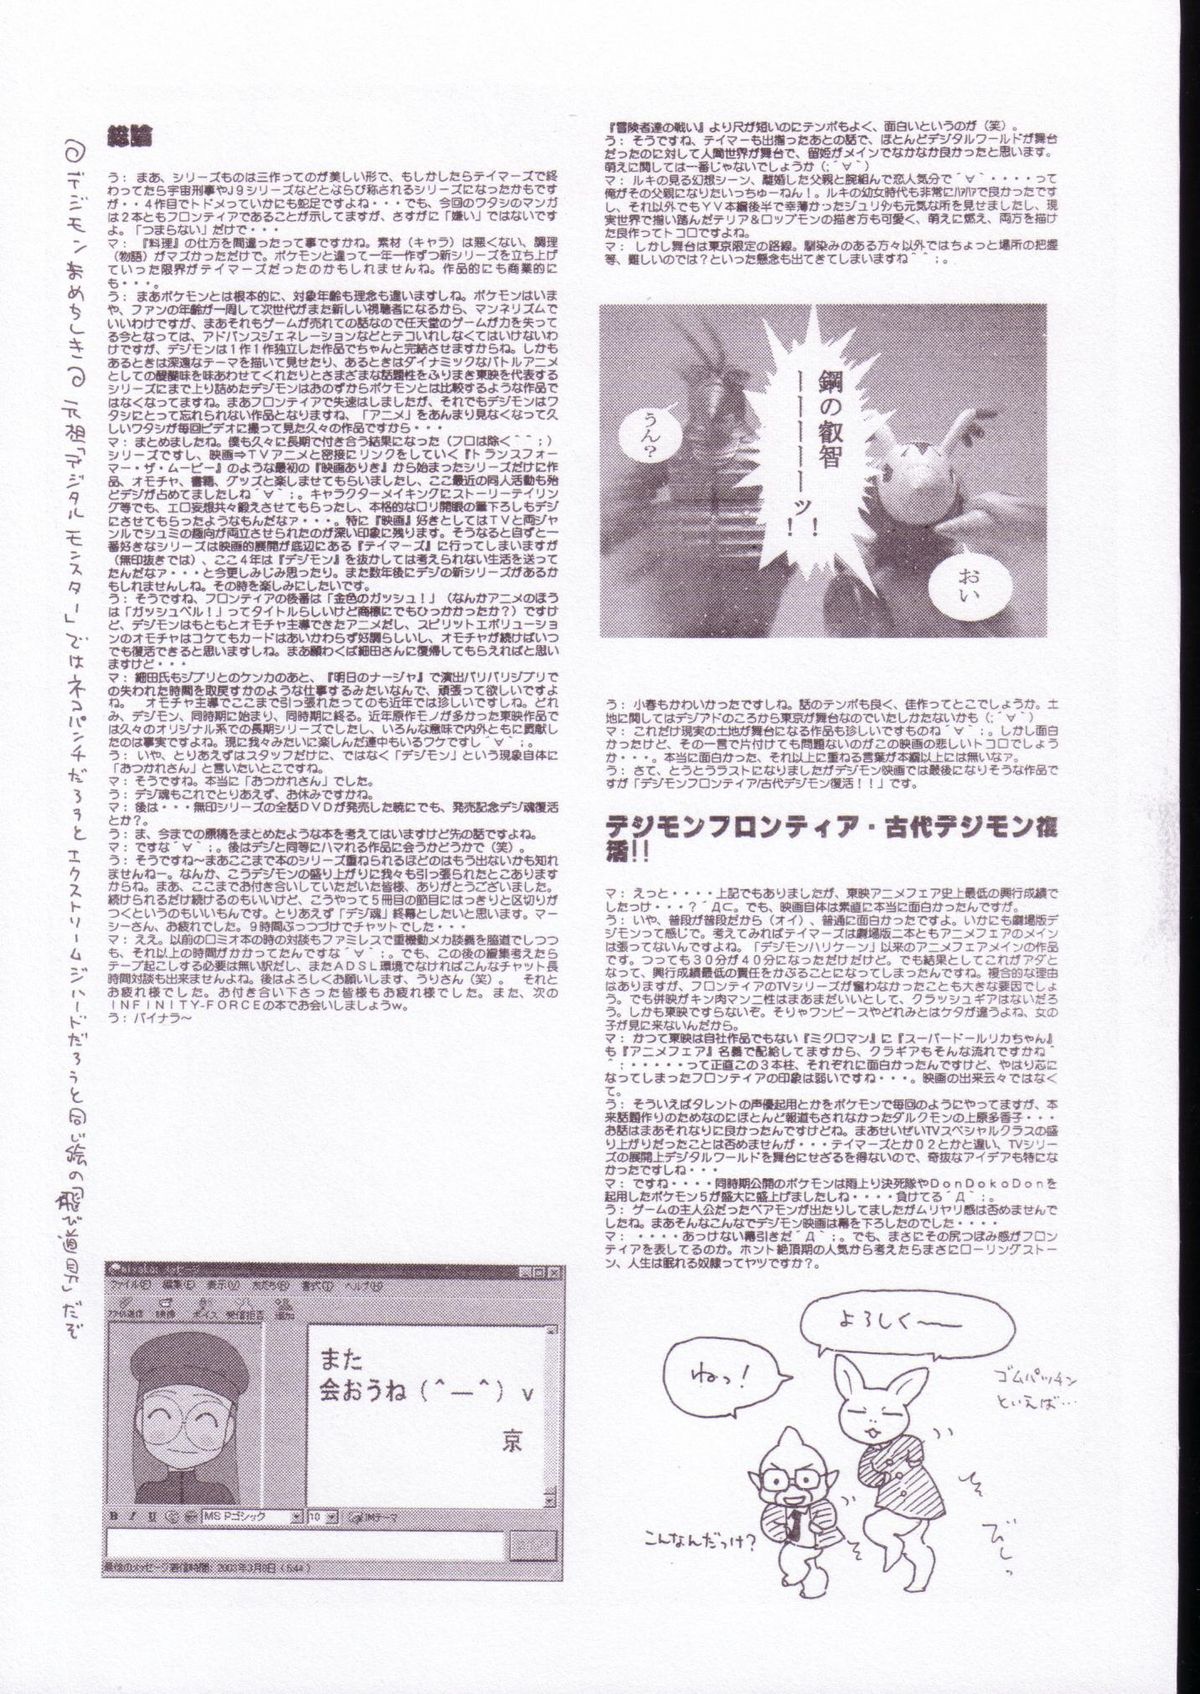 『冒険者達の戦い』より尺が短いのにテンポもよく、面白いというのが(笑)。
う:そうですね、テイマーも出揃ったあとの話で、ほとんどデジタルワールドが舞台
だったのに対して人間世界が舞台で、留姫がメインでなかなか良かったと思います。
マ:しかし舞台は東京限定の路線。馴染みのある方々以外ではちょっと場所の把握
等、難しいのでは?といった懸念も出てきてしまいますね^^;。
鋼の叡智
ーーーーーッ!
うん?
おい
う:小春もかわいかったですしね。話のテンポも良く、佳作ってとこでしょうか。土
地に関してはデジアドのころから東京が舞台なのでいたしかたないかも(;´∀`)
マ:これだけ現実の土地が舞台になる作品も珍しいですものね´∀`;。しかし面白
かったけど、その一言で片付けても問題ないのがこの映画の悲しいトコロでしょう
か・・・。本当に面白かった、それ以上に重ねる言葉が本編以上には無いなァ。
う:さて、とうとうラストになりましたがデジモン映画では最後になりそうな作品で
すが「デジモンフロンティア/古代デジモン復活!!」です。
デジモンフロンティア・古代デジモン復
活!!
マ:えっと・・・・上記でもありましたが、東映アニメフェア史上最低の興行成績で
したっけ・・・?´Д⊂。でも、映画自体は素直に本当に面白かったんですが。
う:いや、普段が普段だから(オイ)、普通に面白かったですよ。いかにも劇場版デ
ジモンって感じで。考えてみればテイマーズは劇場版二本ともアニメフェアのメイン
は張ってないんですよね。「デジモンハリケーン」以来のアニメフェアメインの作品
です。つっても30分が40分になっただけだけど。でも結果としてこれがアダと
なって、興行成績最低の責任をかぶることになってしまったんですね。複合的な理由
はありますが、フロンティアのTVシリーズが奮わなかったことも大きな要因でしょ
う。でも併映がキン肉マン二性はまあまだいいとして、クラッシュギアはないだろ
う。しかも東映ですらないぞ。そりゃワンピースやどれみとはケタが違うよね、女の
子が見に来ないんだから。
マ:かつて東映は自社作品でもない『ミクロマン』に『スーパードールリカちゃん』
も『アニメフェア』名義で配給してますから、クラギアもそんな流れですかね^
^:・・・・・って正直この3本柱、それぞれに面白かったんですけど、やはり芯に
なってしまったフロンティアの印象は弱いですね・・・。映画の出来云々ではなく
て。
う:そういえばタレントの声優起用とかをポケモンで毎回のようにやってますが、本
来話題作りのためなのにほとんど報道もされなかったダルクモンの上原多香子・・・
お話はまあそれなりに良かったんですけどね。まあせいぜいTVスペシャルクラスの盛
り上がりだったことは否めませんが・・・テイマーズとか02とかと違い、TVシリー
ズの展開上デジタルワールドを舞台にせざるを得ないので、奇抜なアイデアも特にな
かったですしね・・・
マ:ですね・・・・同時期公開のポケモンは雨上り決死隊やDonDokoDonを
起用したポケモン5が盛大に盛上げましたしね・・・・負けてる´Д`;。
う:ゲームの主人公だったベアモンが出たりしてましたがムリヤリ感は否めませんで
したね。まあそんなこんなでデジモン映画は幕を下ろしたのでした・・・・
マ:・・・・あっけない幕引きだ´Д`;。でも、まさにその尻つぼみ感がフロン
ティアを表してるのか。ホント絶頂期の人気から考えたらまさにローリングストー
ン、人生は眠れる奴隷ってヤツですか?。
よろしく〜
ねっ!
ゴムパッチン
といえば…
こんなんだっけ?
びしっ
総論
う:まあ、シリーズものは三作ってのが美しい形で、もしかしたらテイマーズで終
わってたら宇宙刑事やJ9シリーズなどとならび称されるシリーズになったかもです
が・・4作目でトドメっていかにも蛇足ですよね・・・でも、今回のワタシのマンガ
は2本ともフロンティアであることが示してますが、さすがに「嫌い」ではないです
よ。「つまらない」だけで・・・
マ:『料理』の仕方を間違ったって事ですかね。素材(キャラ)は悪くない、調理
(物語)がマズかっただけで。ポケモンと違って一年一作ずつ新シリーズを立ち上げ
ていった限界がテイマーズだったのかもしれませんね。作品的にも商業的に
も・・・。
う:まあポケモンとは根本的に、対象年齢も理念も違いますしね。ポケモンはいま
や、ファンの年齢が一周して次世代がまた新しい視聴者になるから、マンネリズムで
いいわけですが、まあそれもゲームが売れての話なので任天堂のゲームが力を失って
る今となっては、アドバンスジェネレーションなどとテコいれしなくてはいけないわ
けですが、デジモンは1作1作独立した作品でちゃんと完結させますからね。しかも
あるときは深遠なテーマを描いて見せたり、あるときはダイナミックなバトルアニメ
としての醍醐味を味あわせてくれたりとさまざまな話題性をふりまき東映を代表する
シリーズにまで上り詰めたデジモンはおのずからポケモンとは比較するような作品で
はなくなってますね。まあフロンティアで失速はしましたが、それでもデジモンはワ
タシにとって忘れられない作品となりますね、「アニメ」をあんまり見なくなって久
しいワタシが毎回ビデオに撮って見た久々の作品ですから・・・
マ:まとめましたね。僕も久々に長期で付き合う結果になった(フロは除く^^;)
シリーズですし、映画⇒TVアニメと密接にリンクをしていく『トランスフォー
マー・ザ・ムービー』のような最初の『映画ありき』から始まったシリーズだけに作
品、オモチャ、書籍、グッズと楽しませてもらいましたし、ここ最近の同人活動も殆
どデジが占めてましたしね´∀`;。キャラクターメイキングにストーリーテイリン
ルでシュミの趣向が両立させられたのが深い印象に残ります。そうなると自ずと一
番好きなシリーズは映画的展開が底辺にある『テイマーズ』に行ってしまいますが
(無印抜きでは)、ここ4年は『デジモン』を抜かしては考えられない生活を送って
たんだなァ・・・と今更しみじみ思ったり。また数年後にデジの新シリーズがあるか
もしれませんしね。その時を楽しみにしたいです。
う:そうですね、フロンティアの後番は「金色のガッシュ!」(なんかアニメのほう
は「ガッシュベル!」ってタイトルらしいけど商標にでもひっかかったか?)ですけ
ど、デジモンはもともとオモチャ主導できたアニメだし、スピリットエボリューショ
ンのオモチャはコケてもカードはあいかわらず好調らしいし、オモチャが続けばいつ
でも復活できると思いますしね。まあ願わくば細田さんに復帰してもらえればと思い
ますけど・・・
マ:細田氏もジブリとのケンカのあと、『明日のナージャ』で演出バリバリジブリで
の失われた時間を取戻すかのような仕事するみたいなんで、頑張って欲しいですよ
ね。 オモチャ主導でここまで引っ張れたってのも近年では珍しいですしね。どれ
み、デジモン、同時期に始まり、同時期に終る。近年原作モノが多かった東映作品で
は久々のオリジナル系での長期シリーズでしたし、いろんな意味で内外ともに貢献し
たのは事実ですよね。現に我々みたいに楽しんだ連中もいるワケですし´∀`;。
う:いや、とりあえずはスタッフだけに、ではなく「デジモン」という現象自体に
「おつかれさん」と言いたいとこですね。
マ:そうですね。本当に「おつかれさん」でした。
う:デジ魂もこれでとりあえず、お休みですかね。
マ:後は・・・無印シリーズの全話DVDが発売した暁にでも、発売記念デジ魂復活
とか?。
う:ま、今までの原稿をまとめたような本を考えてはいますけど先の話ですよね。
マ:ですな´∀`;。後はデジと同等にハマれる作品に会うかどうかで(笑)。
う:そうですね〜まあここまで本のシリーズ重ねられるほどのはもう出ないかも知れ
ませんねー。なんか、こうデジモンの盛り上がりに我々も引っ張られたとこあります
からね。まあ、ここまでお付き合いしていただいた皆様、ありがとうございました。
続けられるだけ続けるのもいいけど、こうやって5冊目の節目にはっきりと区切りが
つくというのもいいもんです。とりあえず「デジ魂」終幕としたいと思います。マー
シーさん、お疲れでした。9時間ぶっつづけでチャットでした・・・
マ:ええ。以前のロミオ本の時の対談もファミレスで重機動メカ談義を脇道でしつつ
も、それ以上の時間がかかってたんですな´∀`;。でも、この後の編集考えたら
テープ起こしする必要は無い訳だし、またADSL環境でなければこんなチャット長
時間対談も出来ませんよね。後はよろしくお願いします、うりさん(笑)。 それと
お疲れ様でした。お付き合い下さった皆様もお疲れ様でした。また、次の
INFINITY-FORCEの本でお会いしましょうw。
う:バイナラ〜
ファイル(F) 編集(E) 表示(V) 友だち(R) 書式(T) ヘルプ(H)
ファイル送信 映像 ボイス 受信拒否 追加
また
会おうね(^ー^)v
京
B I U MS Pゴシック 10 IMテーマ
最後のメッセージ着信時間: 2003年3月8日 (5:44)
◎デジモンまめちしき◎ 元祖「デジタルモンスター」ではネコパンチだろうとエクストリームジハードだろうと同じ絵の「飛び道具」だぞ